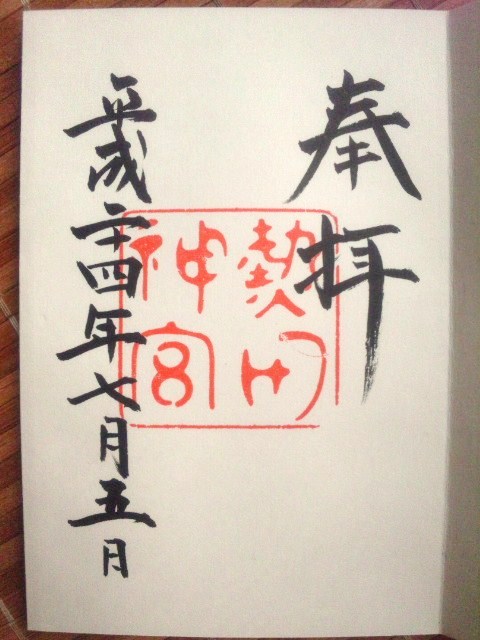 奉拝
熱田
神宮
平成二十四年七月五日